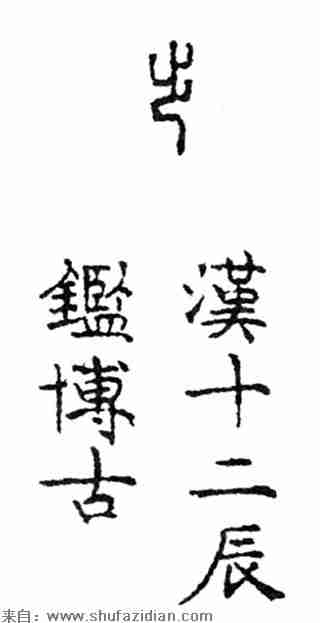 漢十二辰
鑑博古
来自：www.shufazidian.com